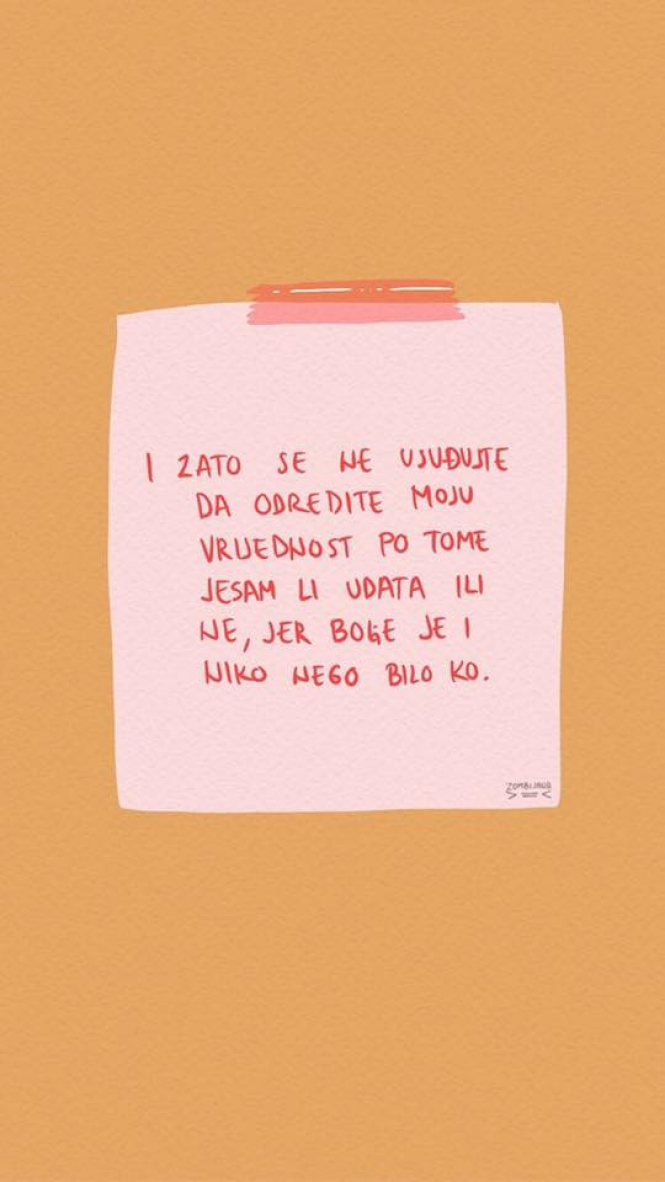 I ZATO SE NE USUĐUJTE
DA ODREDITE MOJU
VRIJEDNOST PO TOME
JESAM LI UDATA ILI
NE, JER BOLJE JE I
NIKO NEGO BILO KO.